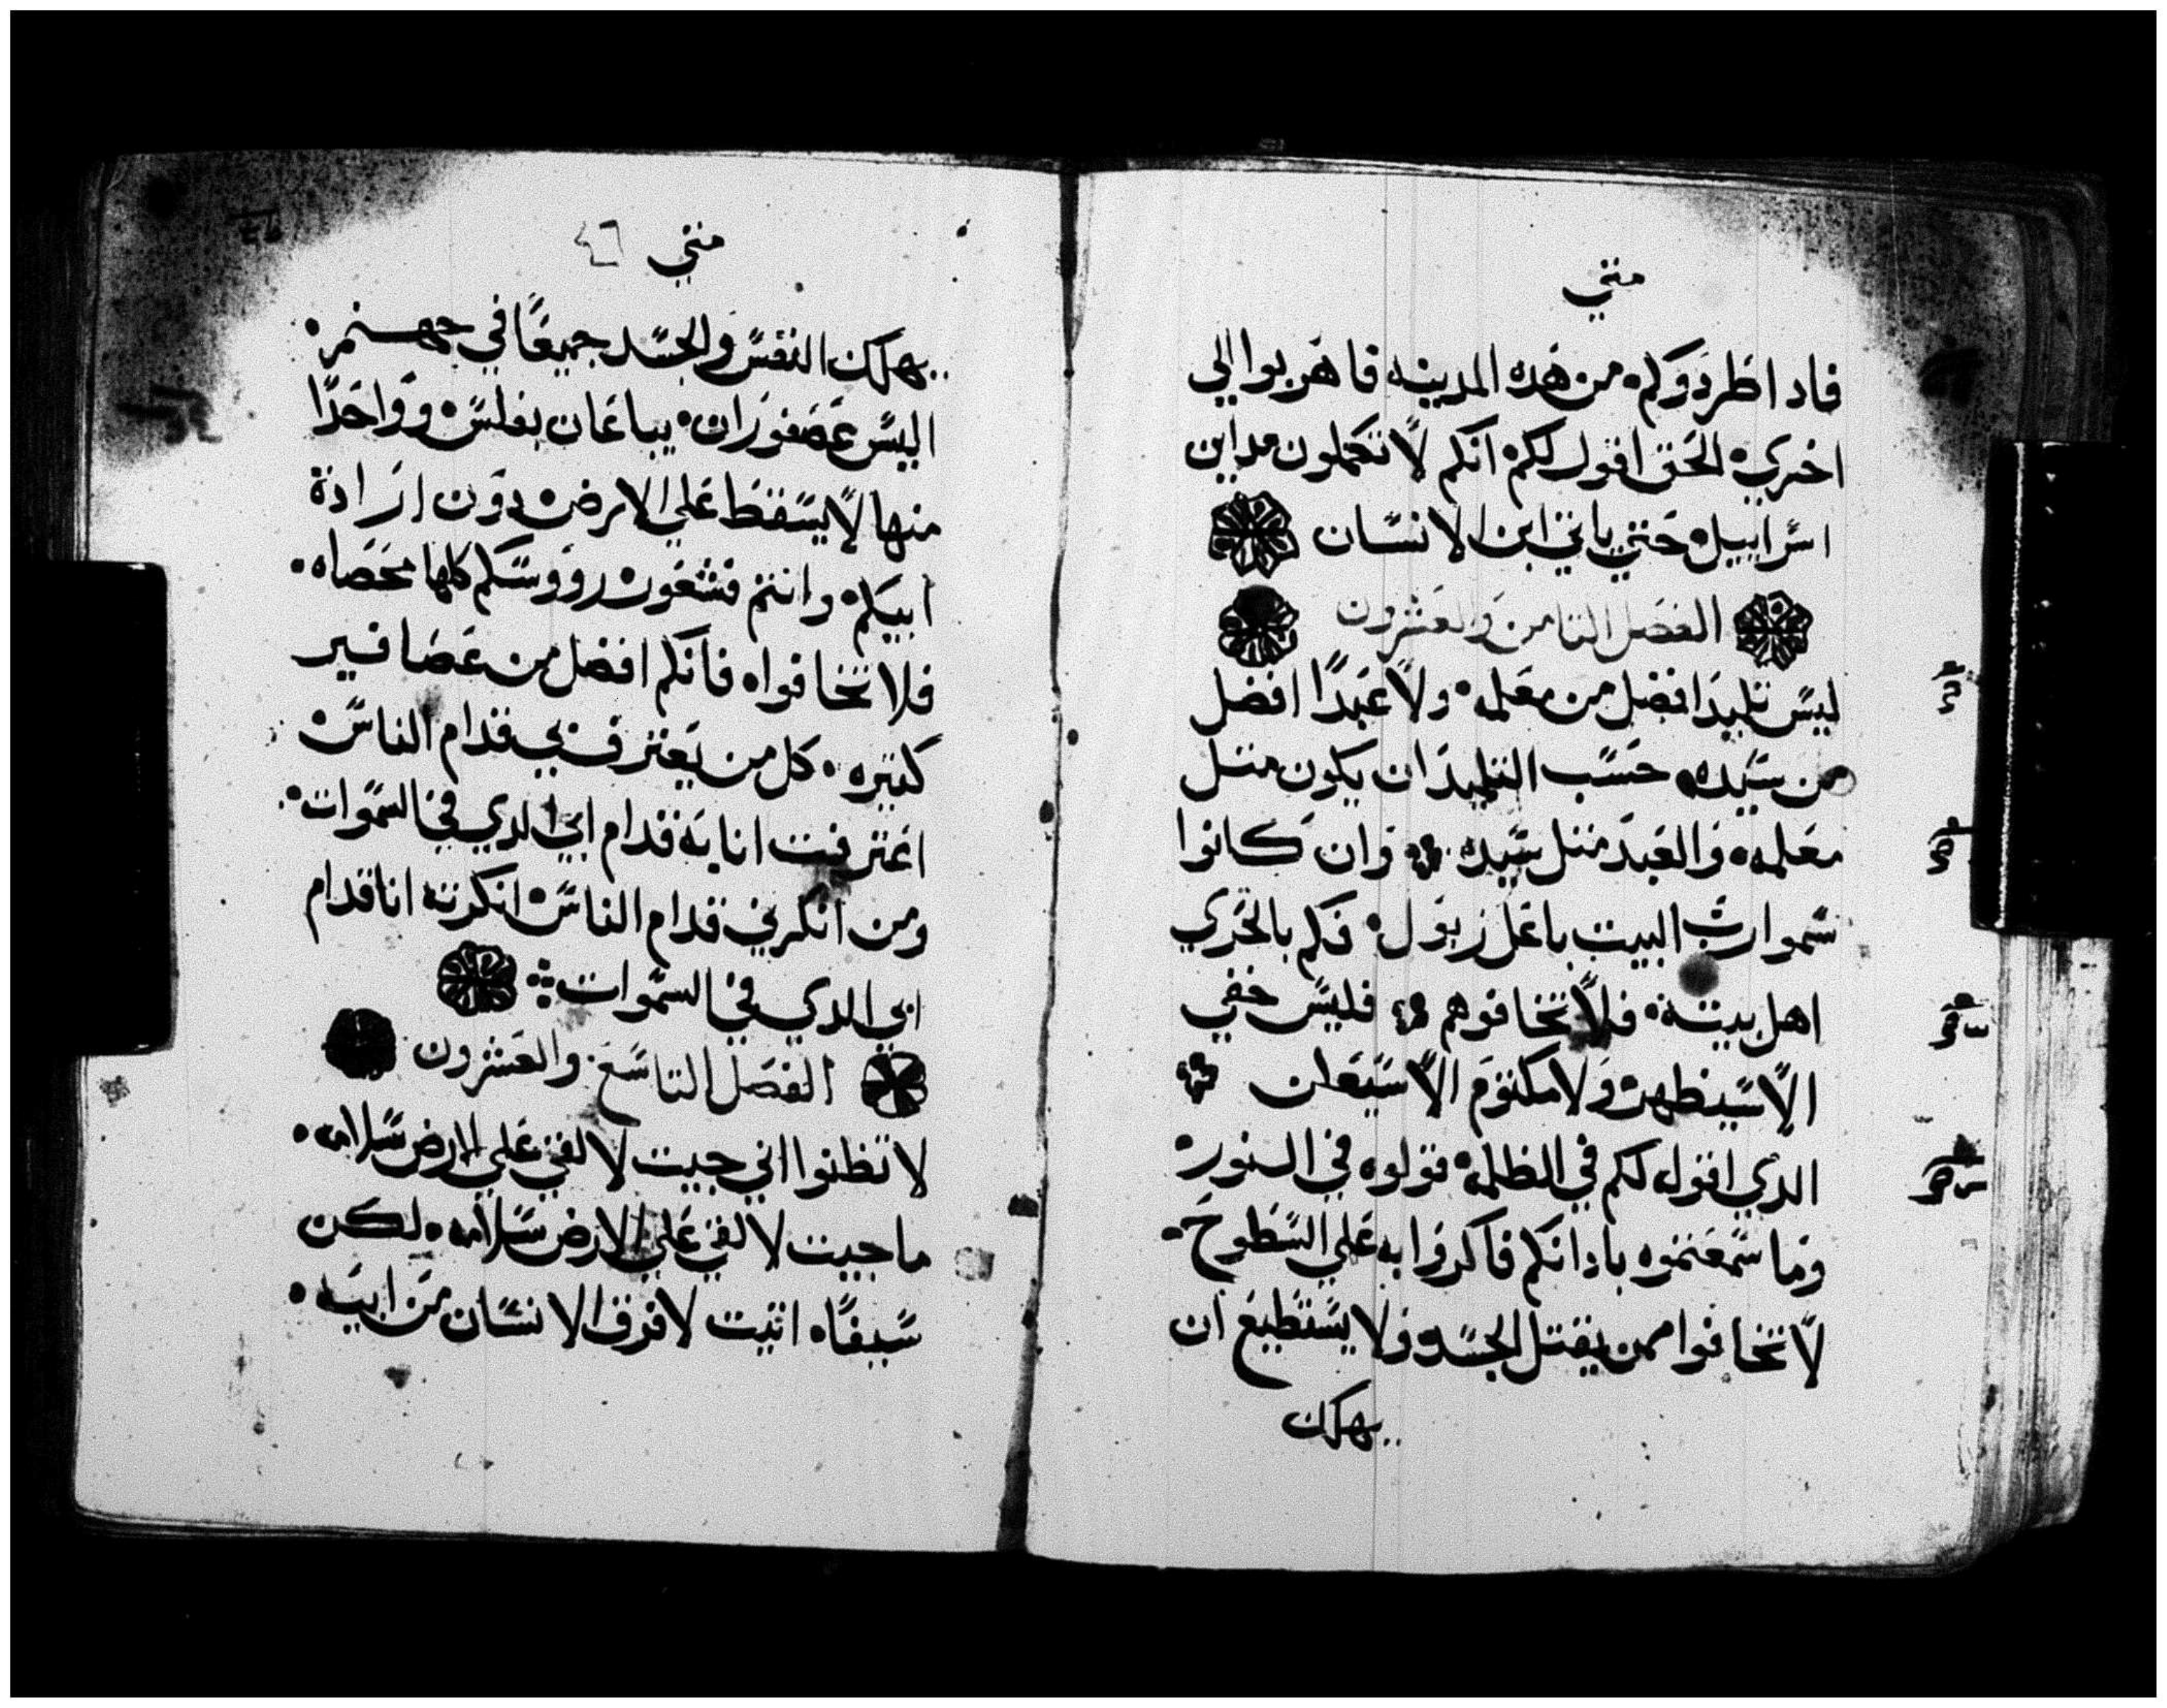 متي
فاداطردوكم من هده المدينه فاهربوا الي
اخري الحق اقول لكم انكم لا تكملون مداين
اسراييل حتي ياتي ابن الانسان
الفصل التامن والعشرون
ليس تلميدا افضل من معلمه ولا عبدًا افضل
من سيده حسب التلميد ان يكون متل
معلمه والعبد متل سيده وان كانوا
سموا رب البيت باعل زبول فكم بالحري
اهل بيته فلا تخافوهم فليس خفي
الا سيظهر ولا مكتوم الا سيعلن
الدي اقول لكم في الظلمه قولوه في النور
وما سمعتموه بادانكم فاكرزوا به علي السطوح
لا تخافوا ممن يقتل الجسد ولا يستطيع ان
يهلك
متي ٤٦
يهلك النفس والجسد جميعًا في جهنم
اليس عصفوران يباعان بفلس وواحدًا
منها لا يسقط علي الارض دون ارادة
ابيكم وانتم فشعور رووسكم كلها محصاه
فلا تخافوا فانكم افضل من عصافير
كتيره كل من يعترف بي قدام الناس
اعترفت انا به قدام ابي الدي في السموات
ومن انكرني قدام الناس انكرته انا قدام
ابي الدي في السموات
الفصل التاسع والعشرون
لا تظنوا اني جيت لالقي علي الارض سلامه
ما جيت لالقي علي الارض سلامه لكن
سيفًا اتيت لافرق الانسان من ابيه